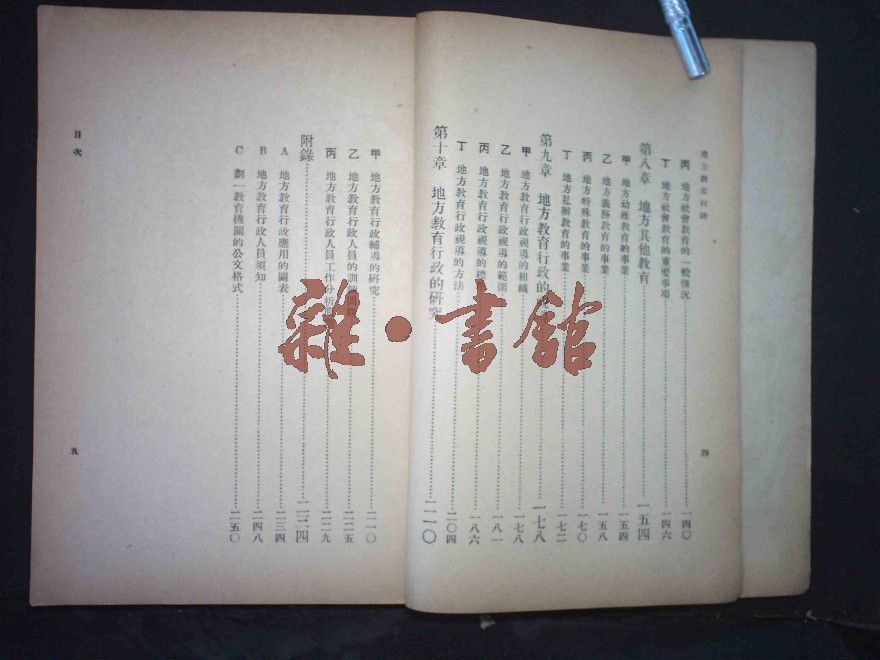 地方教育行政
丙 地方社會教育的一般情況 一四〇
丁 地方社會教育的重要事項 一四六
第八章 地方其他教育 一五四
甲 地方幼稚教育的事業 一五四
乙 地方義務教育的事業 一五八
丙 地方特殊教育的事業 一七〇
丁 地方私辦教育的事業 一七二
第九章 地方教育行政的 一七八
甲 地方教育行政視導的組織 一七八
乙 地方教育行政視導的範圍 一八一
丙 地方教育行政視導的標 一八六
丁 地方教育行政視導的方法 二〇四
第十章 地方教育行政的研究 二一〇
四
甲 地方教育行政輔導的研究 二一〇
乙 地方教育行政人員的訓練 二二五
丙 地方教育行政人員工作分析 二二九
附錄 二三四
A 地方教育行政應用的圖表 二三四
B 地方教育行政人員須知 二四八
C 劃一教育機關的公文格式 二五〇
目次
五
雜·書館